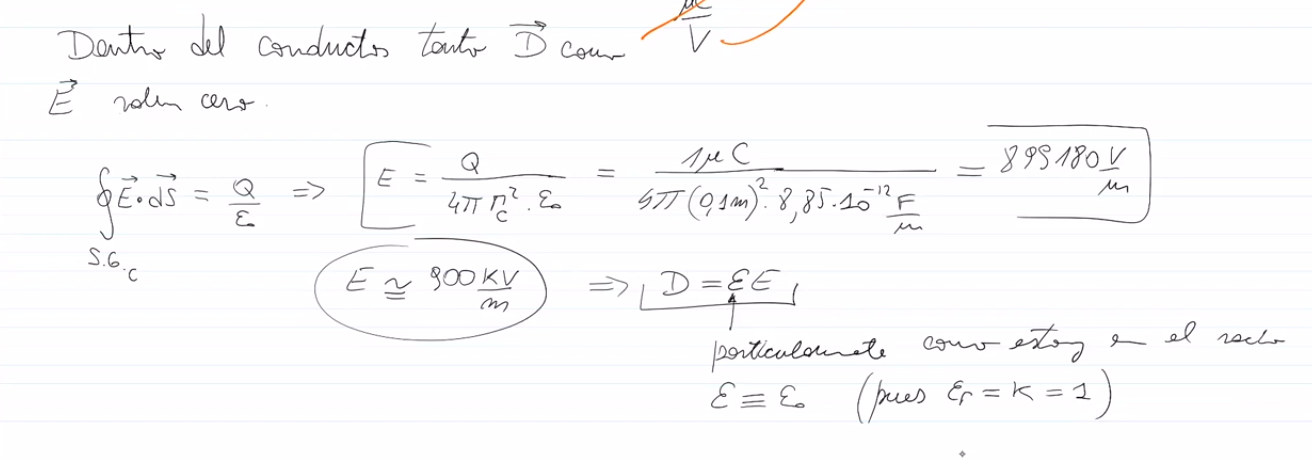 μC/V
Dentro del conductor tanto D⃗ como
E⃗ valen cero.
∮ E⃗·dS⃗ = Q/ε₀ => E = Q/(4π r_c²·ε₀) = 1μC/(4π(0,1m)²·8,85·10⁻¹² F/m) = 899180 V/m
S.G.c
E ≅ 900 KV/m => D = εE
particularmente como estoy en el vacío
ε ≡ ε₀ (pues εr = K = 1)